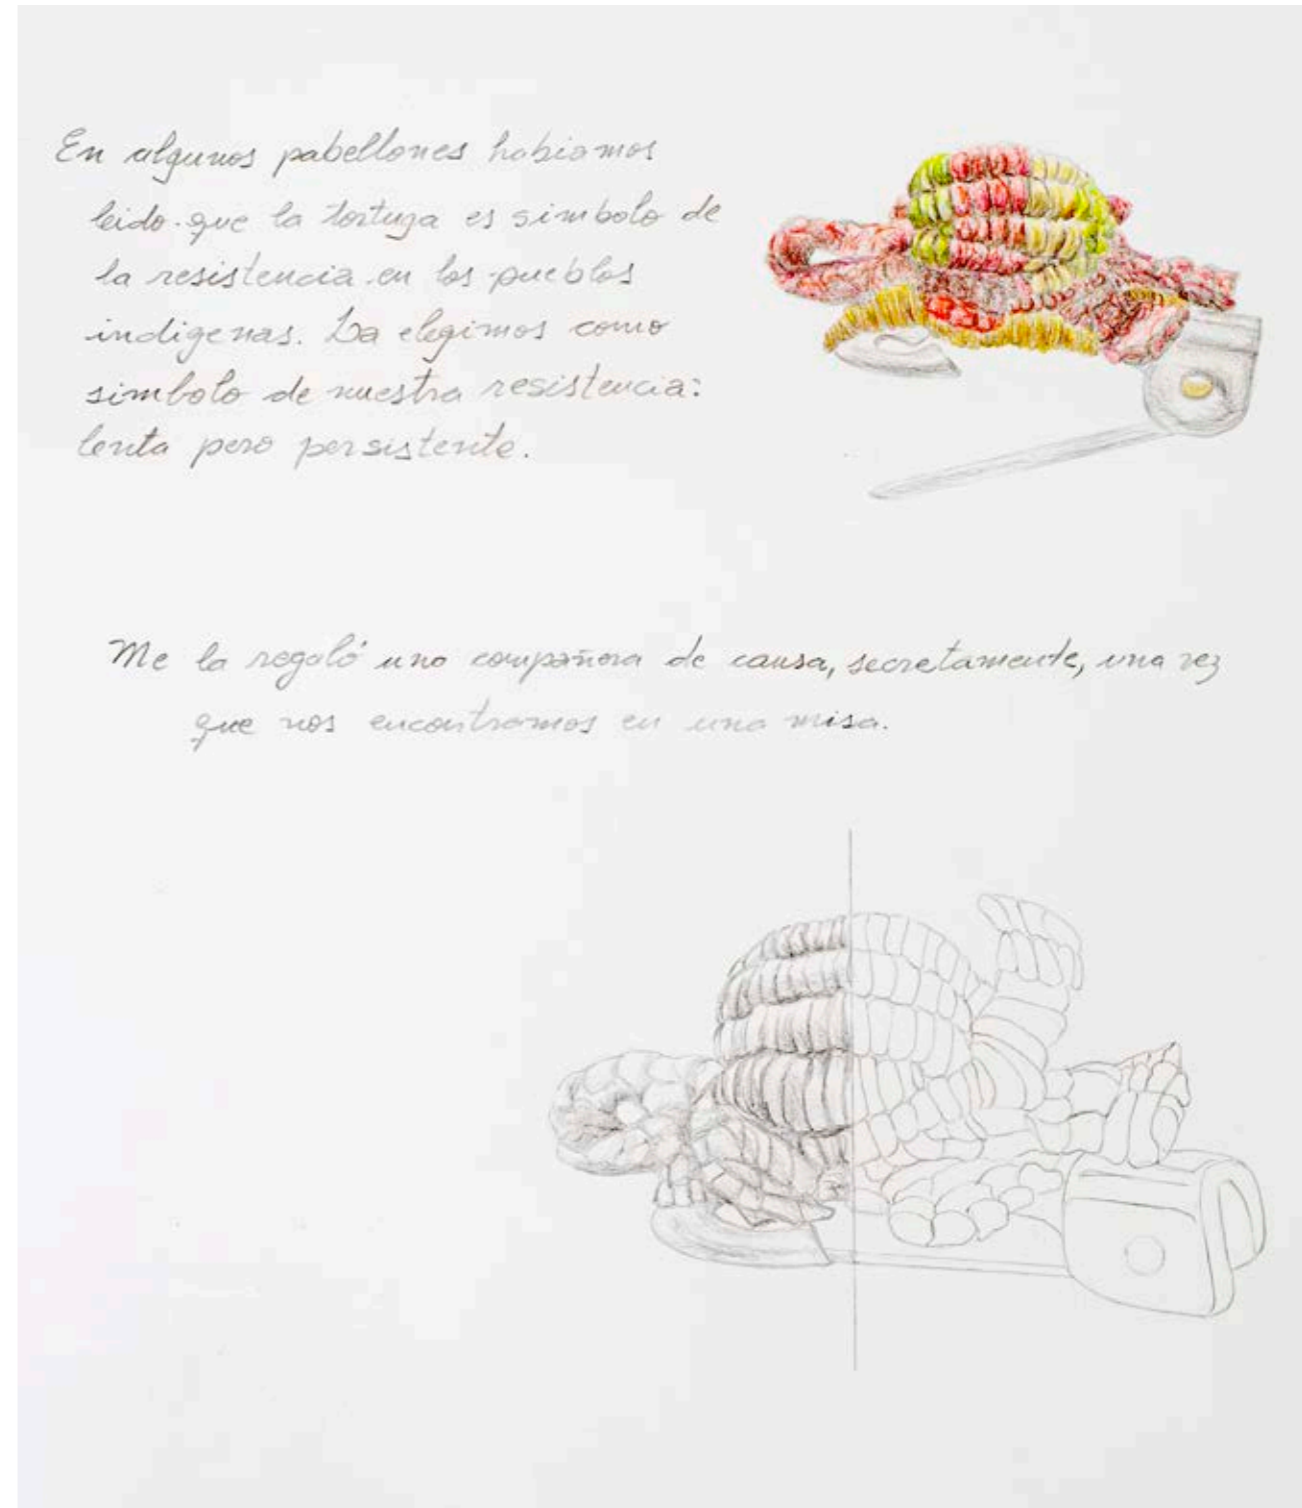 En algunos pabellones habiamos
leido que la tortuga es simbolo de
la resistencia en los pueblos
indigenas. La elegimos como
simbolo de nuestra resistencia:
lenta pero persistente.
Me la regaló una compañera de causa, secretamente, una vez
que nos encontramos en una misa.